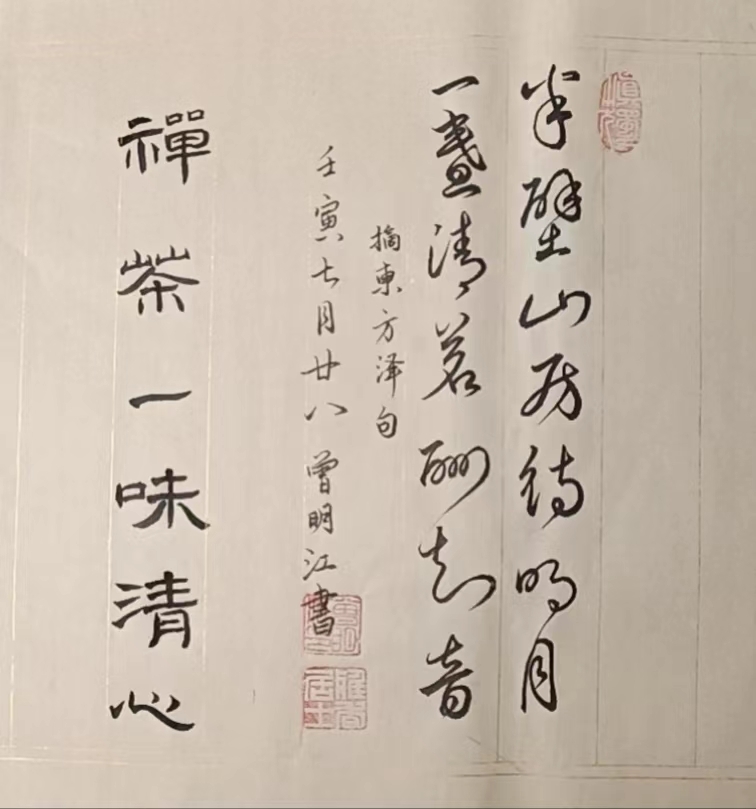 半壁山房待明月
一盏清茗酬知音
摘東方泽句
壬寅七月廿八 曾明江書
禪茶一味清心